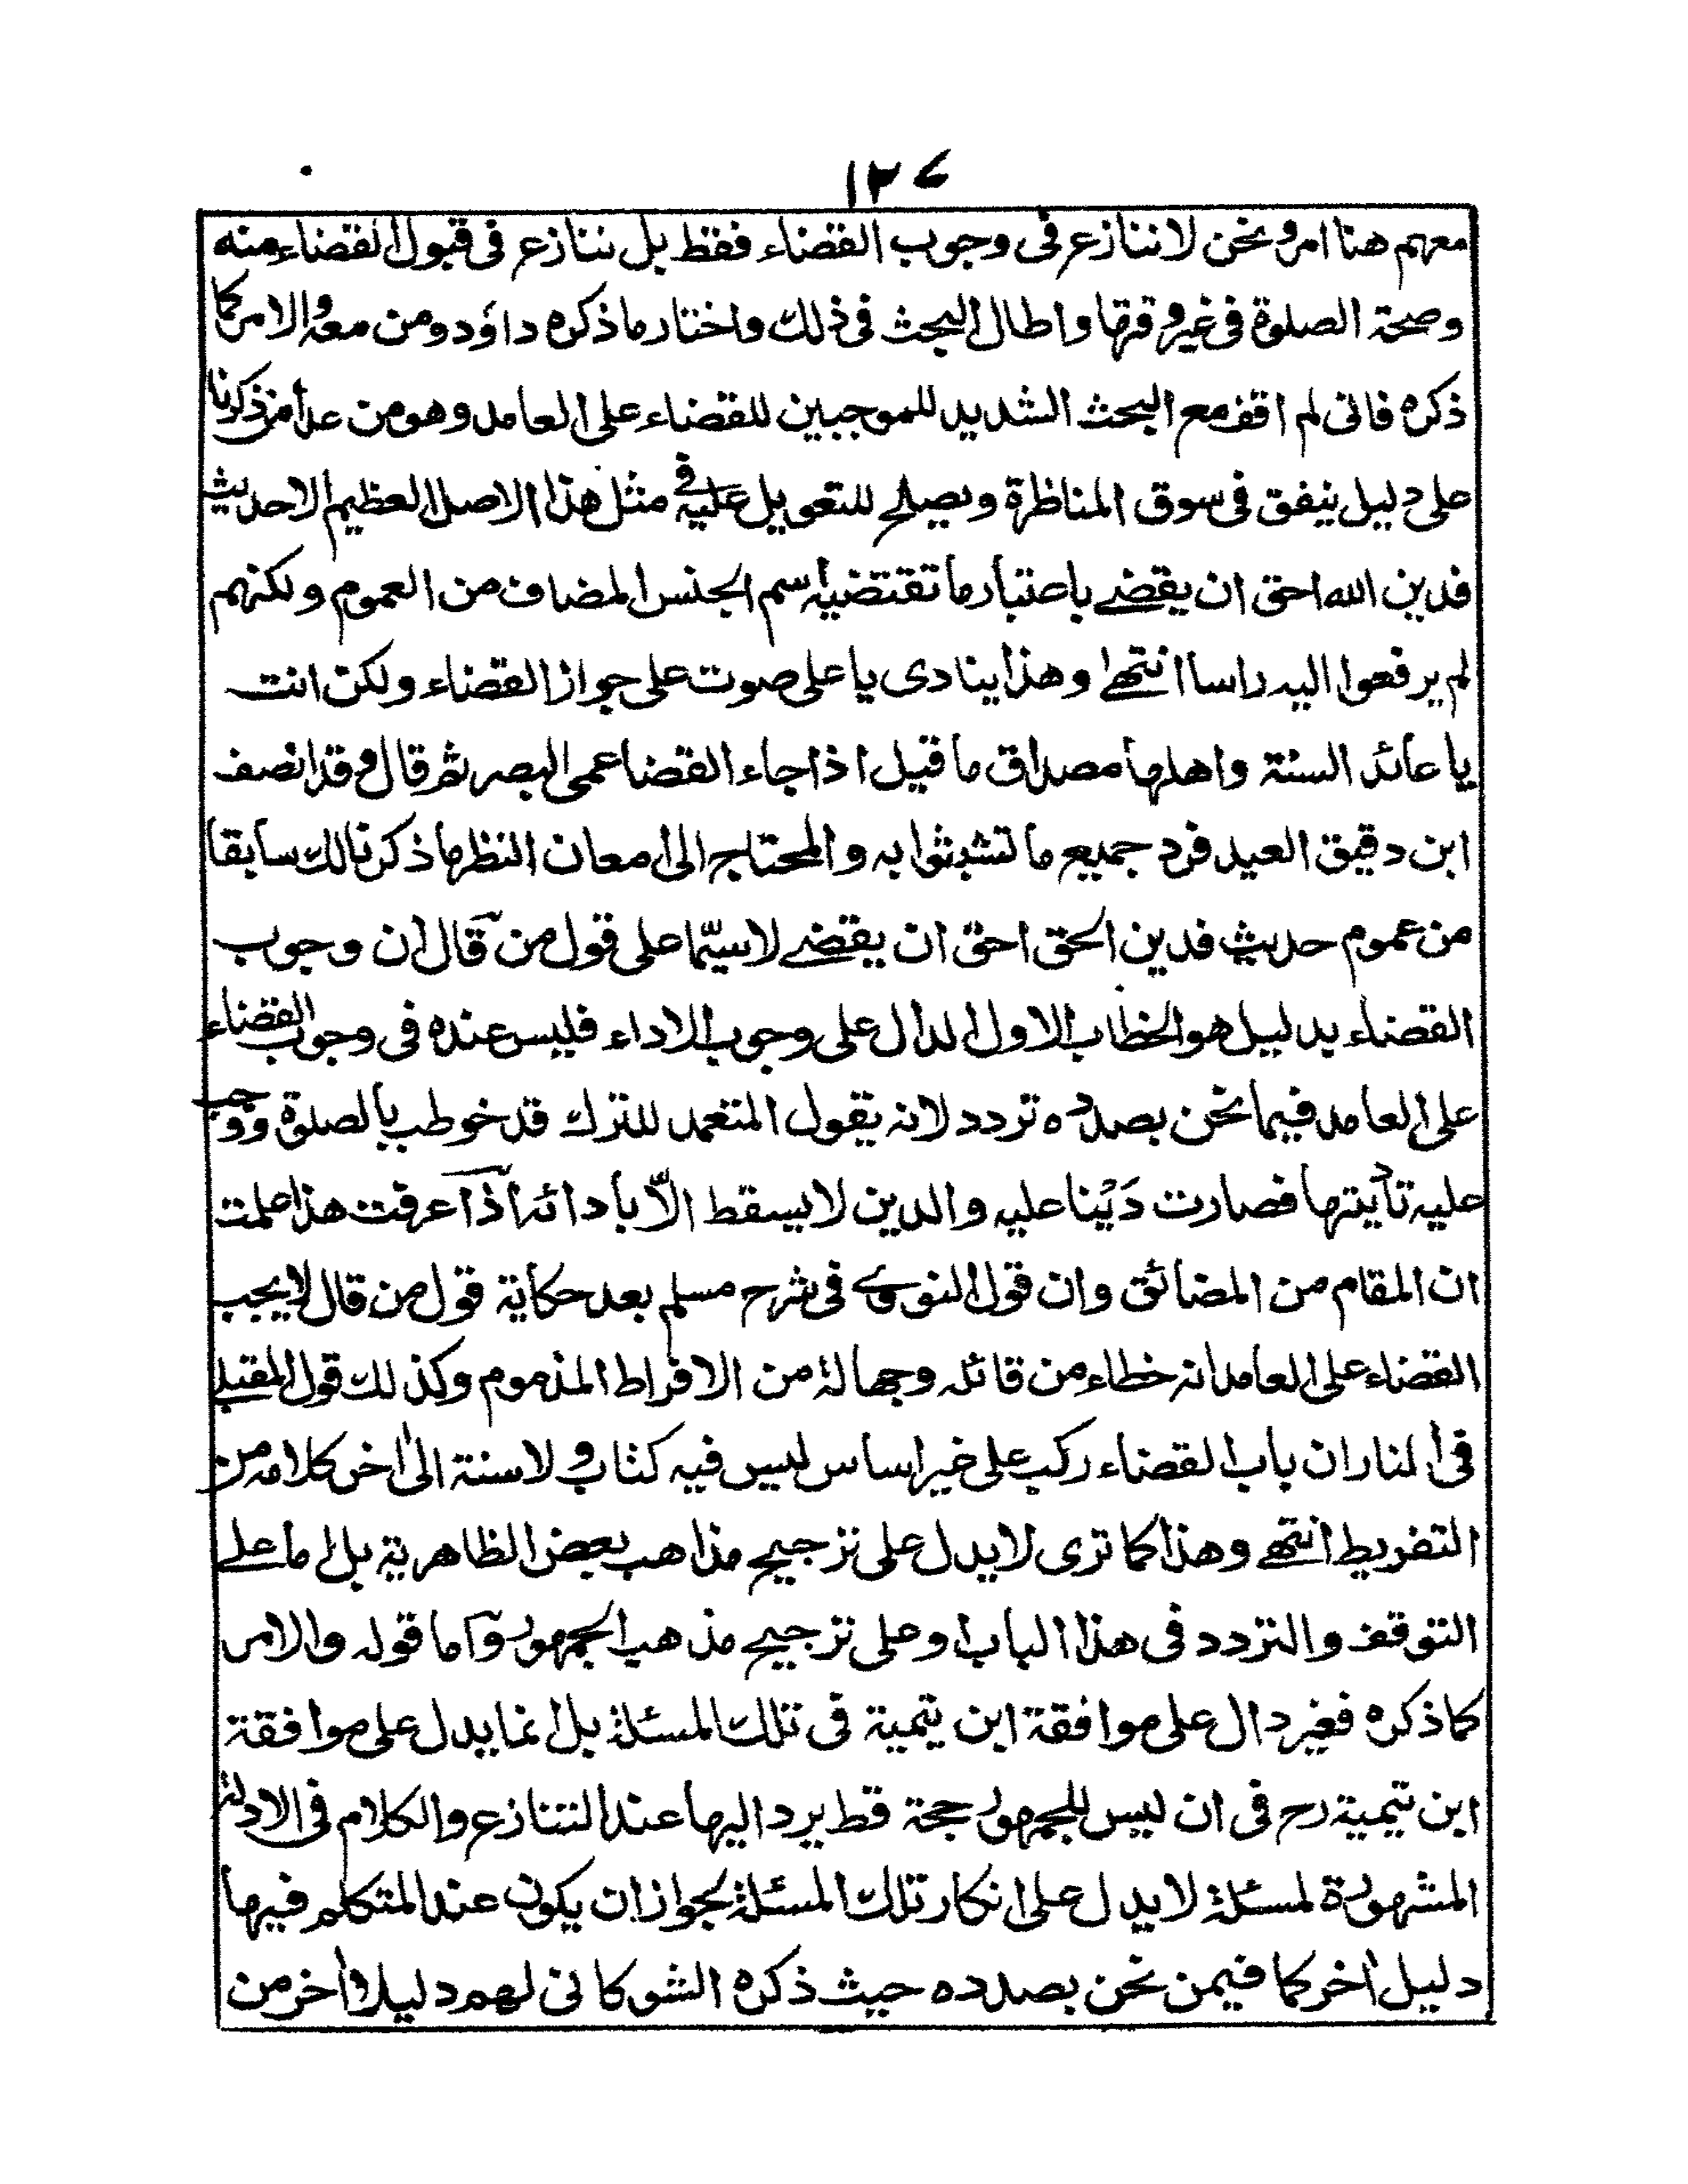 ١٢٧
معهم هنا امر ونحن لا ننازع فى وجوب القضاء فقط بل ننازع فى قبول القضاء منه
وصحة الصلوة فى غير وقتها واطال البحث فى ذلك واختار ما ذكره داؤد ومن معه والامر كما
ذكره فانى لم اقف مع البحث الشديد للموجبين للقضاء على العامد وهو من عدا من ذكرنا
على دليل ينفق فى سوق المناظرة ويصلح للتعويل عليه فى مثل هذا الاصل العظيم الا حديث
فدين الله احق ان يقضے باعتبار ما تقتضيه اسم الجنس المضاف من العموم ولكنهم
لم يرفعوا اليه راسا انتهے وهذا ينادى باعلى صوت على جواز القضاء ولكن انت
يا عائد السنة واهلها مصداق ما قيل اذا جاء القضا عمى البصر ثم قال وقد انصف
ابن دقيق العيد فرد جميع ما تشبثوا به والمحتاج الى امعان النظر ما ذكرنا لك سابقا
من عموم حديث فدين الحق احق ان يقضے لا سيّما على قول من قال ان وجوب
القضاء بدليل هو الخطاب الاول الدال على وجوب الاداء فليس عنده فى وجوب القضاء
على العامد فيما نحن بصدده تردد لانه يقول المتعمد للترك قد خوطب بالصلوة ووجب
عليه تأديتها فصارت دَيْنا عليه والدين لا يسقط الّا بأدائه اذا عرفت هذا علمت
ان المقام من المضائق وان قول النووے فى شرح مسلم بعد حكاية قول من قال لا يجب
القضاء على العامد انه خطاء من قائله وجهالة من الافراط المذموم وكذلك قول المقبلے
فى المنار ان باب القضاء ركب على غير اساس ليس فيه كتاب ولا سنة الى اٰخر كلامه من
التفريط انتهے وهذا كما ترى لا يدل على ترجيح مذاهب بعض الظاهرية بل اما علے
التوقف والتردد فى هذا الباب او على ترجيح مذهب الجمهور واما قوله والامر
كما ذكره فغير دال على موافقة ابن تيمية فى تلك المسئلة بل انما يدل على موافقة
ابن تيمية رح فى ان ليس للجمهور حجة قط يرد اليها عند التنازع والكلام فى الادلة
المشهورة لمسئلة لا يدل على انكار تلك المسئلة لجواز ان يكون عند المتكلم فيها
دليل اٰخر كما فيمن نحن بصدده حيث ذكره الشوكانى لهم دليلا اٰخر من